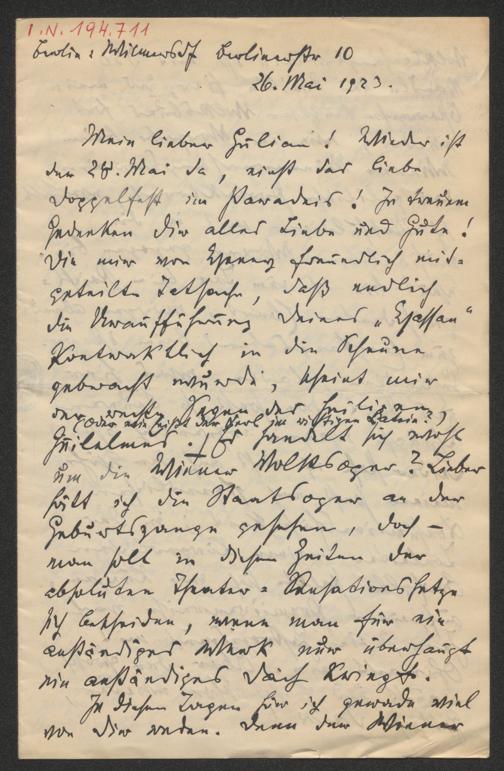 I.N. 194.711
Berlin-Wilmersdf Berlinerstr 10
26. Mai 1923.
Mein lieber Julian! Wieder ist
der 28. Mai da, einst das liebe
Doppelfest im Paradeis! In treuem
Gedenken dir alles Liebe und Gute!
Die mir von freundlich mit-
geteilte Tatsache, daß endlich
die Uraufführung Deines „Hassan"
kontraktlich in die Scheune
gebracht wurde, scheint mir
der Segen des heiligen
(oder wie heißt der Kerl im richtigen Latein?)
Guilelmus. Es handelt sich wohl
um die Wiener Volksoper? Lieber
hätt ich die Staatsoper an der
Geburtszange gesehen, doch –
man soll in diesen Zeiten der
absoluten Theater-Sensationshetze
sich bescheiden, wenn man für ein
anständiges Werk nur überhaupt
ein anständiges Dach kriegt.
In diesen Tagen hör ich gerade viel
von Dir reden. Denn der Wiener